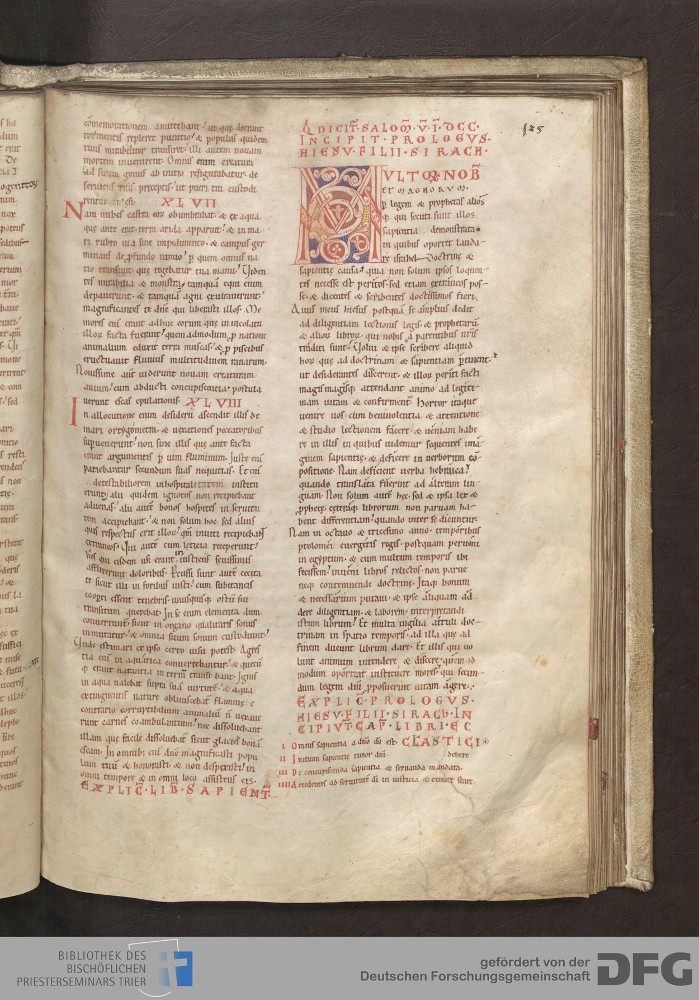 cōmemorationem amittebant ut que deerant
tormentis repleret punitio & populus quidem
tuus mirabiliter transiret illi autem nouam
mortem inuenirent Omnis enim creatura
ad suum genus ab initio refigurabatur de
seruiens tuis preceptis ut pueri tui custodi
rentur
XLVII
Nam nubes castra eorū obumbrabat & ex aqua
que ante erat terra arida apparuit & in ma
ri rubro uia sine impedimento & campus ger
minans de profundo nimio p quem omnis na
tio transiuit que tegebatur tua manu Uiden
tes mirabilia & monstra tamquā equi enim
depauerunt & tamquā agni exultauerunt
magnificantes te dnē qui liberasti illos Me
mores eni erant adhuc eorum que in incolatu
illorū facta fuerant quemadmodum p natione
animalium eduxit terra muscas & p piscibus
eructauit fluuius multitudinem ranarum
Nouissime aūt uiderunt nouam creaturam
auium cum adducti concupiscentia postula
uerunt escas epulationis XLVIII
In allocutione enim desiderii ascendit illis de
mari ortygometra & uexationes peccatoribus
supuenerunt non sine illis que ante facta
erant argumentis p uim fluminum Iuste enī
patiebantur secundum suas nequitias Et enī
detestabiliorem inhospitalitatem institu
erunt alii quidem ignotos non recipiebant
aduenas alii aūt bonos hospites in seruitu
tem accipiebant & non solum hoc sed alius
quis respectus erit illorū qm inuiti recipiebant
extraneos Qui aūt cum leticia receperunt
hos qui eisdem usi erant iusticiis seuissimis
afflixerunt doloribus Pcussi sunt aūt cecita
te sicut illi in foribus iusti cum subitaneis
cooperti essent tenebris unusquisque ostii sui
transitum querebat In se enim elementa dum
conuertunt sicut in organo qualitatis sonus
inmutatur & omnia suum sonum custodiunt
Unde estimari ex ipso certo uisu potest Agres
tia enī in aquatica conuertebantur & quecū
que erant natantia in terrā transibant Ignis
in aqua ualebat supra suā uirtutē & aqua
extinguentis nature obliuiscebatur Flamme e
contrario corruptibilium animaliū nō uexaue
runt carnes coambulantium nec dissoluebant
illam que facile dissoluebatur sicut glacies bonā
escam In omnib; enī dnē magnificasti popu
lum tuū & honorasti & non despexisti in
omni tempore & in omni loco assistens eis.
EXPLIC̄ · LIB · SAPIENT̄
125
Q̄ DICIT̄ · SALOM̄ · V · I · DCC ·
INCIPIT · PROLOGVS ·
HIESV · FILII · SIRACH ·
MVLTORVM NOB̄
ET MAGNORVM ·
p legem & prophetas alios
que qui secuti sunt illos
sapientia demonstrata
in quibus oportet lauda
re israhel doctrine &
sapientie causa quia non solum ipsos loquen
tes necesse est peritos sed etiam extraneos pos
se & dicentes & scribentes doctissimos fieri.
Auus meus hiesus postquā se amplius dedit
ad diligentiam lectionis legis & prophetarū
& alioꝝ librorꝝ qui nobis a parentibus nris
traditi sunt uoluit & ipse scribere aliquid
horꝝ que ad doctrinam & sapientiam ptinent
ut desiderantes discere & illorꝝ periti facti
magis magisque attendant animo ad legiti-
mam uitam & confirment Hortor itaque
uenire uos cum beniuolentia & attentione
& studio lectionem facere & ueniam habe
re in illis in quibus uidemur sequentes ima
ginem sapientie & deficere in uerborum cō
positione Nam deficiunt uerba hebraica
quando translata fuerint ad alteram lin-
guam Non solum autē hec sed & ipsa lex &
prophete ceteraque librorum non paruam ha-
bent differentiam quando inter se dicuntur
Nam in octauo & tricesimo anno temporibus
ptolomei euergetis regis postquam perueni
in egyptum & cum multum temporis ibi
fecissem inueni libros relictos non parue
neque contemnende doctrine Itaque bonum
& necessarium putaui & ipse aliquam ad
dere diligentiam & laborem interpretandi
istum librum Et multa uigilia attuli doc-
trinam in spatio temporis ad illa que ad
finem ducunt librum dare Et illis qui uo
lunt animum intendere & discere quem ad
modum oporteat instituere mores qui secun
dum legem dnī pposuerint uitam agere.
EXPLIC̄ · PROLOGVS ·
HIESV · FILII · SIRACH · IN
CIPIVT · CAP̄ · LIBRI · EC
CLASTICI
I Omnis sapientia a dnō dō est
II Initium sapientie timor dnī
III De concupiscenda sapientia & seruanda mandata
IIII Accedentes ad seruitutē dī in iusticia & timore stare
debere
BIBLIOTHEK DES
BISCHÖFLICHEN
PRIESTERSEMINARS TRIER
gefördert von der
Deutschen Forschungsgemeinschaft
DFG